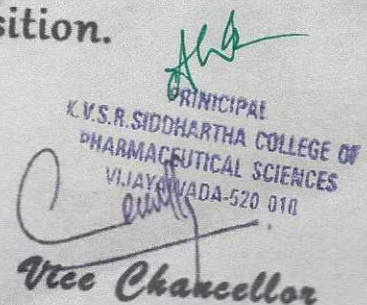 sition.
PRINICIPAL
K.V.S.R.SIDDHARTHA COLLEGE OF
PHARMACEUTICAL SCIENCES
VIJAYAWADA-520 010
Vice Chancellor